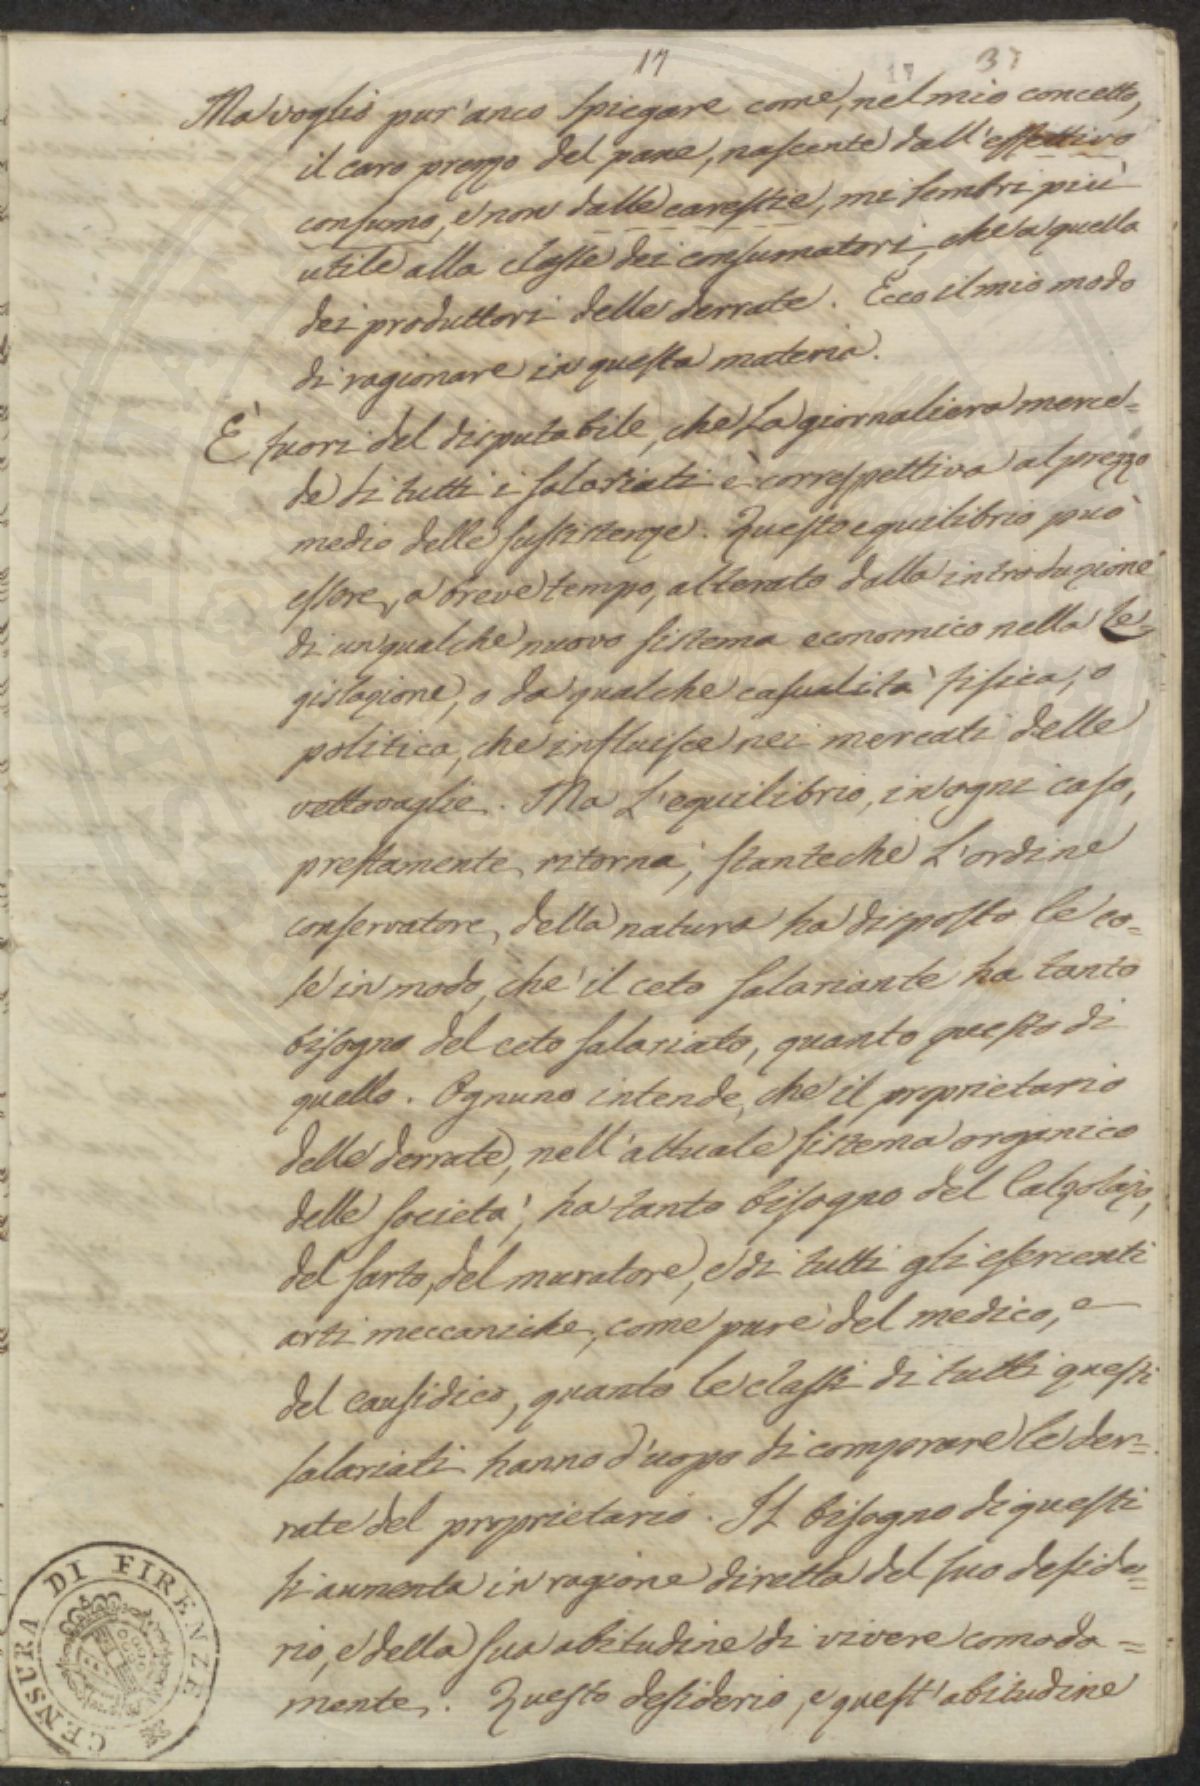 17 37
Ma voglio pur'anco spiegare come, nel mio concetto,
il caro prezzo del pane, nascente dall'effettivo
consumo, e non dalle carestie, mi sembri più
utile alla classe dei consumatori, che a quella
dei produttori delle derrate. Ecco il mio modo
di ragionare in questa materia.
È fuori del disputabile, che la giornaliera merce=
de di tutti i salariati è correspettiva al prezzo
medio delle sussistenze. Questo equilibrio può
essere, a breve tempo, alterato dalla introduzione
di un qualche nuovo sistema economico nella Le=
gislazione, o da qualche casualità fisica, o
politica, che influisce nei mercati delle
vettovaglie. Ma l'equilibrio, in ogni caso,
prestamente ritorna; stanteché l'ordine
conservatore della natura ha disposto le co=
se in modo, che il ceto salariante ha tanto
bisogno del ceto salariato, quanto questo di
quello. Ognuno intende, che il proprietario
delle derrate, nell'attuale sistema organico
delle società, ha tanto bisogno del Calzolajo,
del sarto, del muratore, e di tutti gli esercenti
arti meccaniche, come pure del medico, e
del causidico, quanto le classi di tutti questi
salariati hanno d'uopo di comprare le der=
rate del proprietario. Il bisogno di questi
si aumenta in ragione diretta del suo deside=
rio, e della sua abitudine di vivere comoda=
mente. Questo desiderio, e quest'abitudine
CENSURA DI FIRENZE